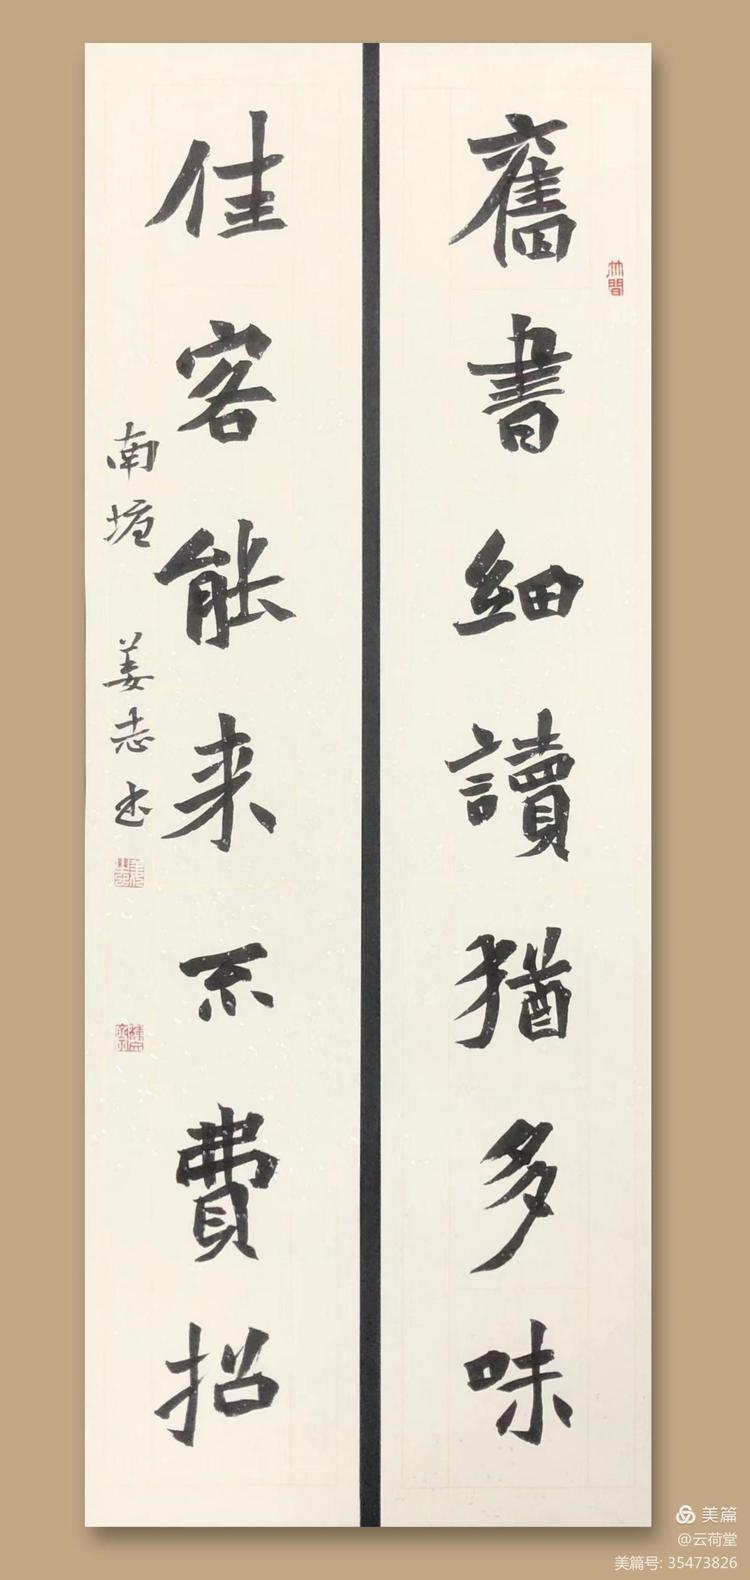 舊書細讀猶多味
佳客能来不費招
南壖 姜志书
美篇
@云荷堂
美篇号: 35473826